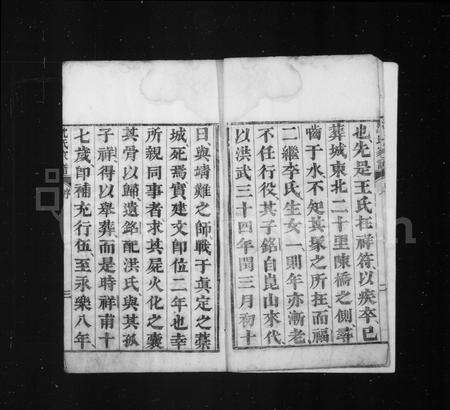 也先是王氏在祥符以疾卒已
葬城東北二十里陳橋之側尋
嚙于水不知其冢之所在而福
二繼李氏生女一則年亦漸老
不任行役其子銘自崑山來代
以洪武三十四年閏三月初十
日與靖難之師戰于真定之藁
城死焉實建文卽位二年也幸
所親同事者求其屍火化之囊
其骨以歸遺銘配洪氏與其孤
子祥得以舉葬而是時祥甫十
七歲卽補充行伍至永樂八年